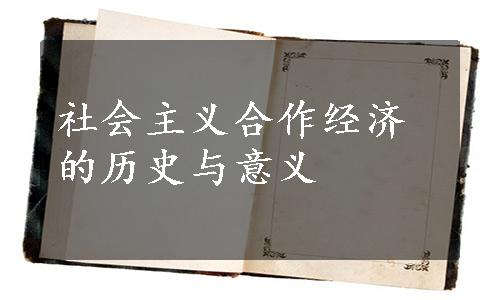 社会主义合作经济
的历史与意义